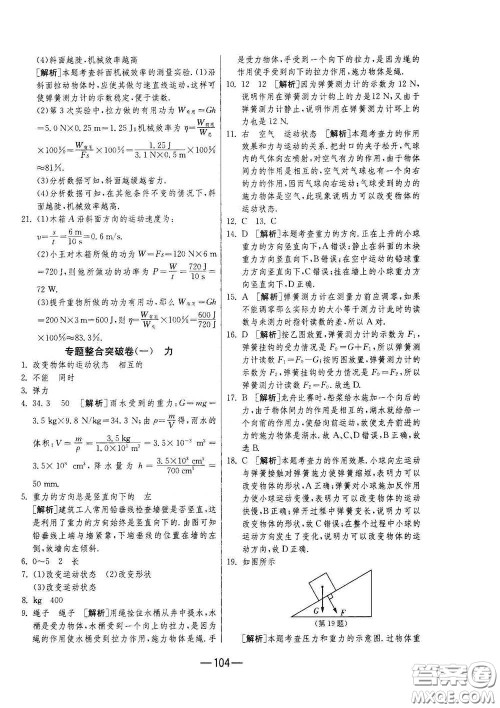 (4)斜面越陡,机械效率越高
[解析]本题考查斜面机械效率的测量实验.(1)沿
斜面拉动物体时,应尽量使其做匀速直线运动,这样可
使弹簧测力计的示数稳定,便于读数.
(2)第3次实验中,拉力所做的有用功为W有用=Gh
=5.0 N×0.25 m=1.25 J;机械效率为η=W有用/W总
×100%=W有用/Fs×100%=1.25 J/(3.1 N×0.5 m)×100%
≈81%.
(3)分析数据可知,斜面越缓越省力.
(4)分析数据可知,在其他条件不变的情况下,斜面
越陡,机械效率越高.
21. (1)木箱A沿斜面方向的运动速度为:
v=s/t=6 m/10 s=0.6 m/s.
(2)小王对木箱A所做的功为W=Fs=120 N×6 m
=720 J,则他所做功的功率为P=W/t=720 J/10 s=
72 W.
(3)提升重物所做的功有用功为W有用=Gh=
200 N×3 m=600 J,则机械效率为η=W有用/W=600 J/720 J
×100%≈83.3%.
专题整合突破卷(一) 力
1. 改变物体的运动状态 相互的
2. 不能 同时
3. 弹力
4. 34.3 50 [解析]雨水受到的重力:G=mg=
3.5 kg×9.8 N/kg=34.3 N;由ρ=m/V得,雨水的
体积:V=m/ρ=3.5 kg/(1.0×10³ kg/m³)=3.5×10⁻³ m³=
3.5×10³ cm³,降水量为h=3.5×10³ cm³/700 cm²=
5 cm.
5. 重力的方向总是竖直向下的 左
[解析]建筑工人常用铅垂线检查墙壁是否竖直,这
是利用了重力的方向始终是竖直向下的.由图可知
铅垂线上端与墙紧靠,下端垂线的位置在墙体的右
侧,故墙向左倾斜.
6. 0～5 2 长
7. (1)改变运动状态 (2)改变形状
(3)改变运动状态
8. kg 400
9. 绳子 绳子 [解析]用绳拴住水桶从井中提水,水
桶是受力物体,水桶受到一个向上的拉力,是因为
绳的作用使水桶受到拉力,故施力物体是绳.手
是受力物体,手受到一个向下的拉力,是因为绳的
作用使手受到向下的拉力,施力物体是绳.
10. 12 12 [解析]因为弹簧测力计的示数为12 N,
说明作用在弹簧测力计钩上的力是12 N.又由于
弹簧测力计静止,说明作用在弹簧测力计壳上的
力是12 N.
11. 右 空气 运动状态 [解析]本题考查力的作用
效果和力与运动的关系.把封口的夹子松开,气球
内的气体向左喷射,对外部空气有一个向左的作用
力,因为力的作用是相互的,空气对气球也有一个
向右的作用力,因而气球向右运动;气球受到的力
的施力物体是空气,此现象说明力可以改变物体的
运动状态.
12. C 13. C
14. D [解析]本题考查重力的方向.正在上升的小球
重力的方向竖直向下,A错误;静止在斜面的木块
重力方向竖直向下,B错误;在空中运动的铅球重
力方向竖直向下,C错误;挂在墙上的小球重力方
向竖直向下,D正确.
15. A [解析]弹簧测力计在测量力前应调零,如果
不能调零那么实际力的大小等于测力计此时的读
数与未测力时指针读数的差,所以A对.
16. D [解析]按乙图放置,弹簧测力计的示数为F₁,
弹簧挂钩的受力情况是F₁=G+F₁,所以弹簧测
力计读数F₁=F₀−G₁;按丙图放置,弹簧测力计的
示数为F₂,弹簧挂钩的受力情况是F₂=F₀,弹簧测
力计读数F₂=F₀.故选D.
17. B [解析]龙舟比赛时,船桨给水施加一个向后
的力,由于物体间力的作用是相互的,水就给船桨
一个向前的作用力,使龙舟前进,故使龙舟前进的
力的施力物体是水.故A、C、D错误,B正确.
18. C [解析]本题考查力的作用效果.小球向左运动
与弹簧接触对弹簧施力使弹簧变形,说明力可以
改变物体的形状,A正确;弹簧对小球施加反作用
力使小球运动变慢,说明力可以改变物体的运动
状态,B正确;小球向右弹开的过程中,弹簧的形状
发生了改变,弹簧由弹簧变长,说明力可以改
变物体的形状,故C错误;在整个过程中小球的运动
状态始终在发生改变,说明力可以改变物体的运
动方向,故D正确.
19. 如图所示
G F
(第19题)
[解析]本题考查压力和重力的示意图.过物体重
—104—
答案圈
MXQE.COM